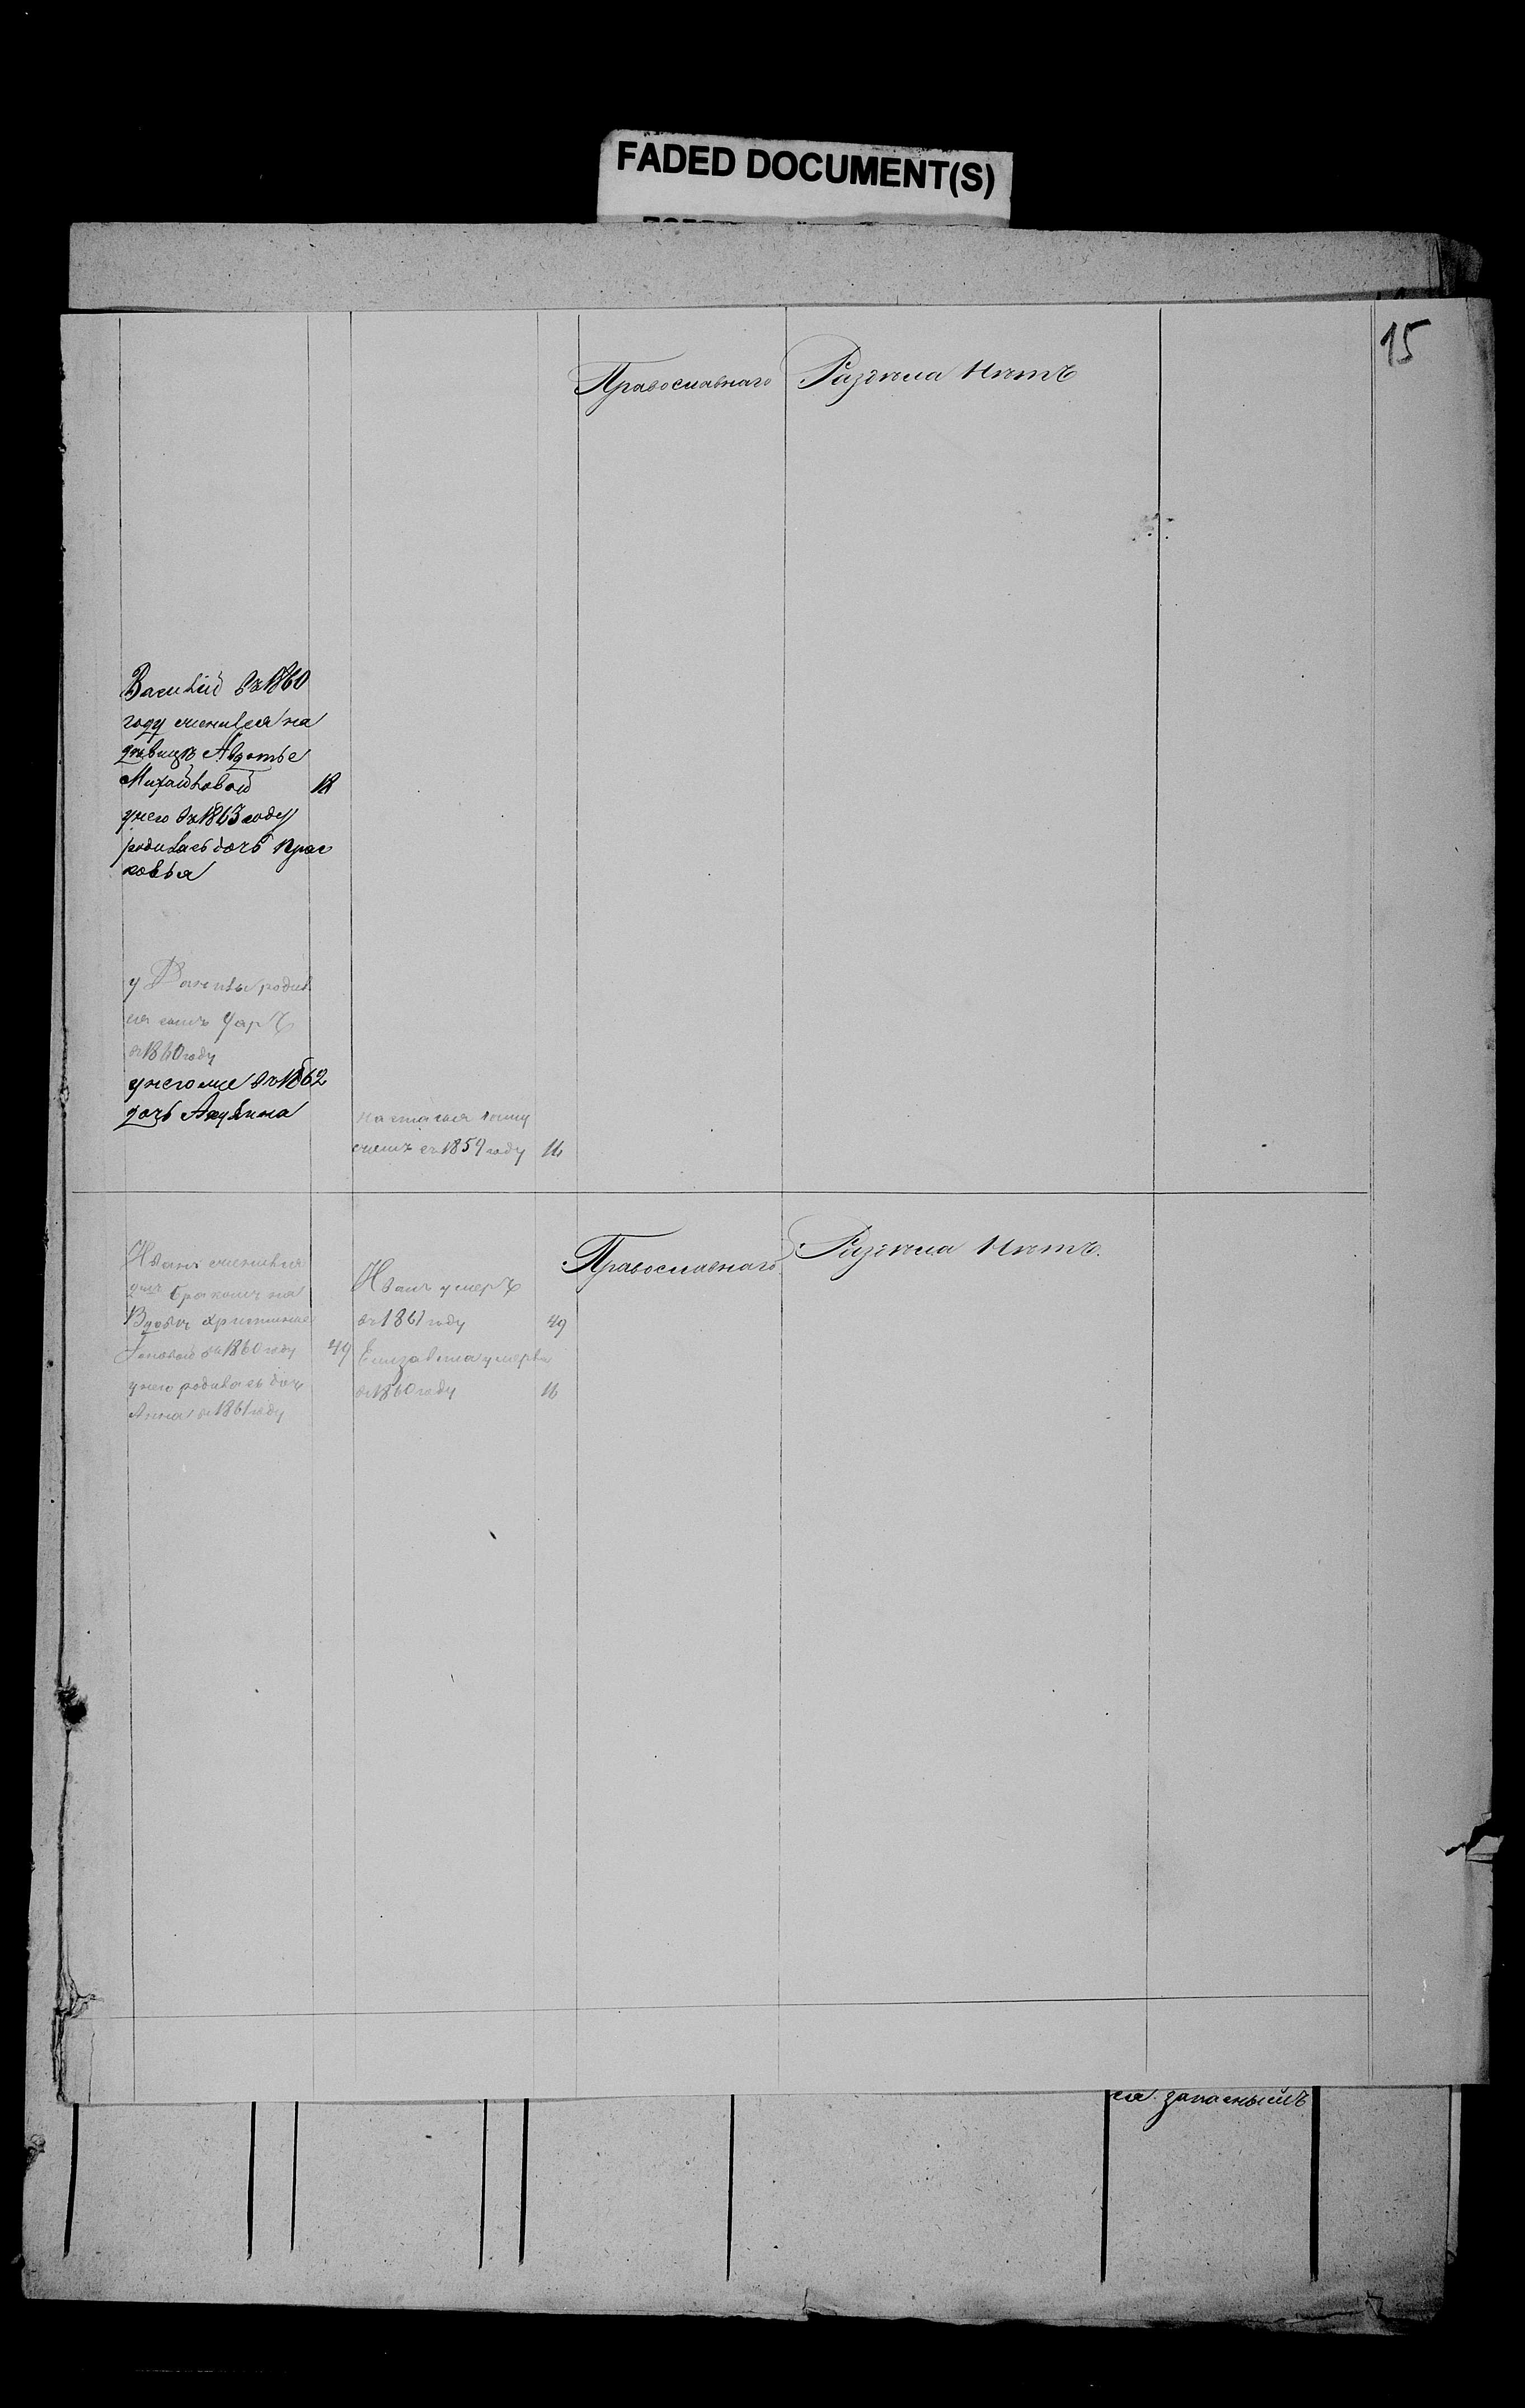 FADED DOCUMENT(S)
15
Православнаго
Раздѣла Нѣтъ
Василій въ 1860
году женился на
дѣвицѣ Авдотье
Михайловой 18
у него въ 1863 году
родилась дочь Прас
ковья
у родил
ся сынъ
въ 1860 году
у него же въ 1862
дочь Акулина
въ 1859 году 16
Православнаго
Раздѣла Нѣтъ.
Иванъ женился
бракомъ на
Вдовѣ
въ 1860 году 49
у него родилась дочь
Анна въ 1861 году
Иванъ умеръ
въ 1861 году 49
Елизавета умерла
въ 1860 году 16
ся запаснымъ